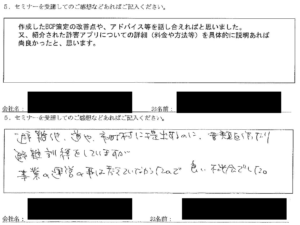 5. セミナーを受講してのご感想などあればご記入ください。
作成したBCP策定の改善点や、アドバイス等を話し合えればと思いました。
又、紹介された計画アプリについての詳細（料金や方法等）を具体的に説明あれば
尚良かったと、思います。
会社名： お名前：
5. セミナーを受講してのご感想などあればご記入ください。
避難や、道や、市町村に提出するのに、書類を作ったり
避難訓練をしていますが
事業の運営の事は考えていなかったので 良い 機会でした。
会社名： お名前：